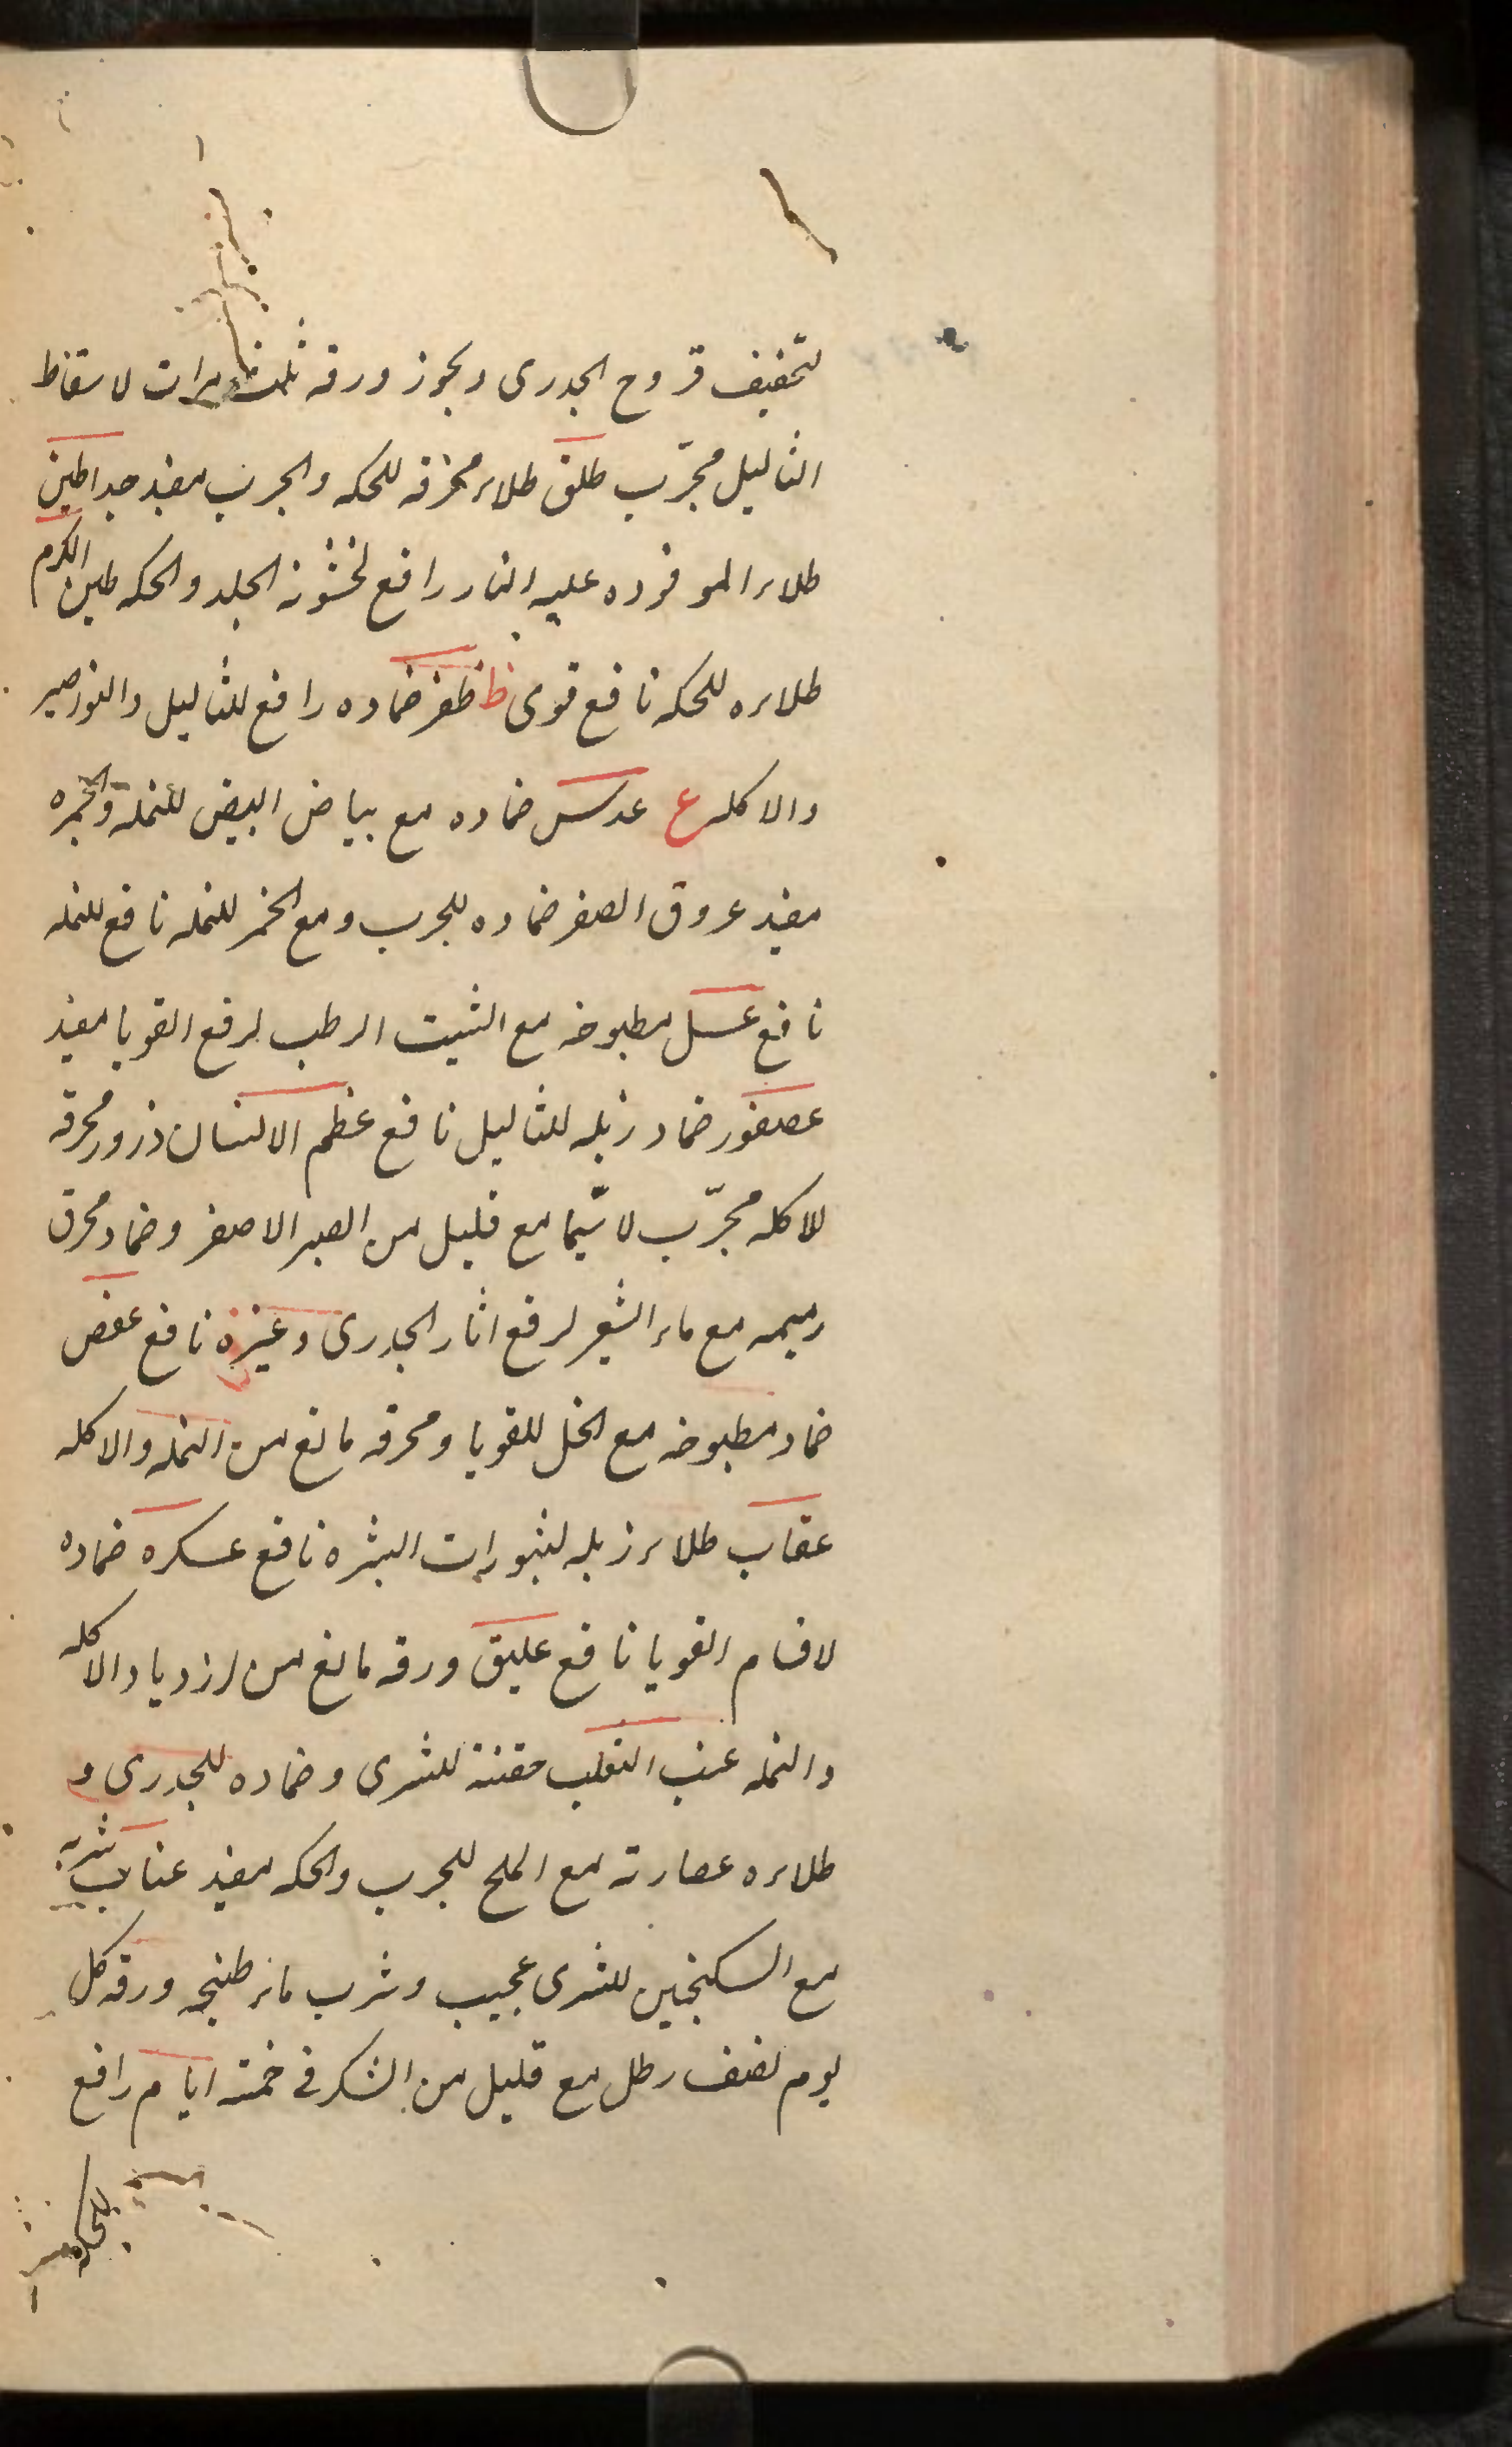 لتجفيف قروح الجدری وبجوز ورقه ثلث مرات لاسقاط
الثالیل مجرّب طلق طلاء محرقه للحکه والجرب مفید جدا طین
طلاء الموقوده علیه النار رافع لخشونة الجلد والحکه طین الکرم
طلاءه للحکه نافع قوی ظ ظفر ضماده رافع للثالیل والنواصیر
والاکله ع عدس ضماده مع بیاض البیض للنمله والحمره
مفید عروق الصفر ضماده للجرب ومع الخمر للنمله نافع للنمله
نافع عسل مطبوخه مع الشبت الرطب لرفع القوبا مفید
عصفور ضماد زبله للثالیل نافع عظم الانسان ذرور محرقه
للاکله مجرّب لاسیّما مع قلیل من الصبر الاصفر وضماد محرق
رمیمه مع ماء الشعیر لرفع اثار الجدری وغیره نافع عفص
ضماد مطبوخه مع الخل للقوبا ومحرقه مانع من النمله والاکله
عقاب طلاء زبله لبثورات البشره نافع عسکره ضماده
لاقسام القوبا نافع علیق ورقه مانع من ازدیاد الاکله
والنمله عنب الثعلب حقنة للشری وضماده للجدری و
طلاءه عصارته مع الملح للجرب والحکه مفید عناب شربه
مع السکنجبین للشری عجیب وشرب ماء طبیخه ورقه کل
یوم نصف رطل مع قلیل من السکر فی خمسة ایام رافع
للحکه